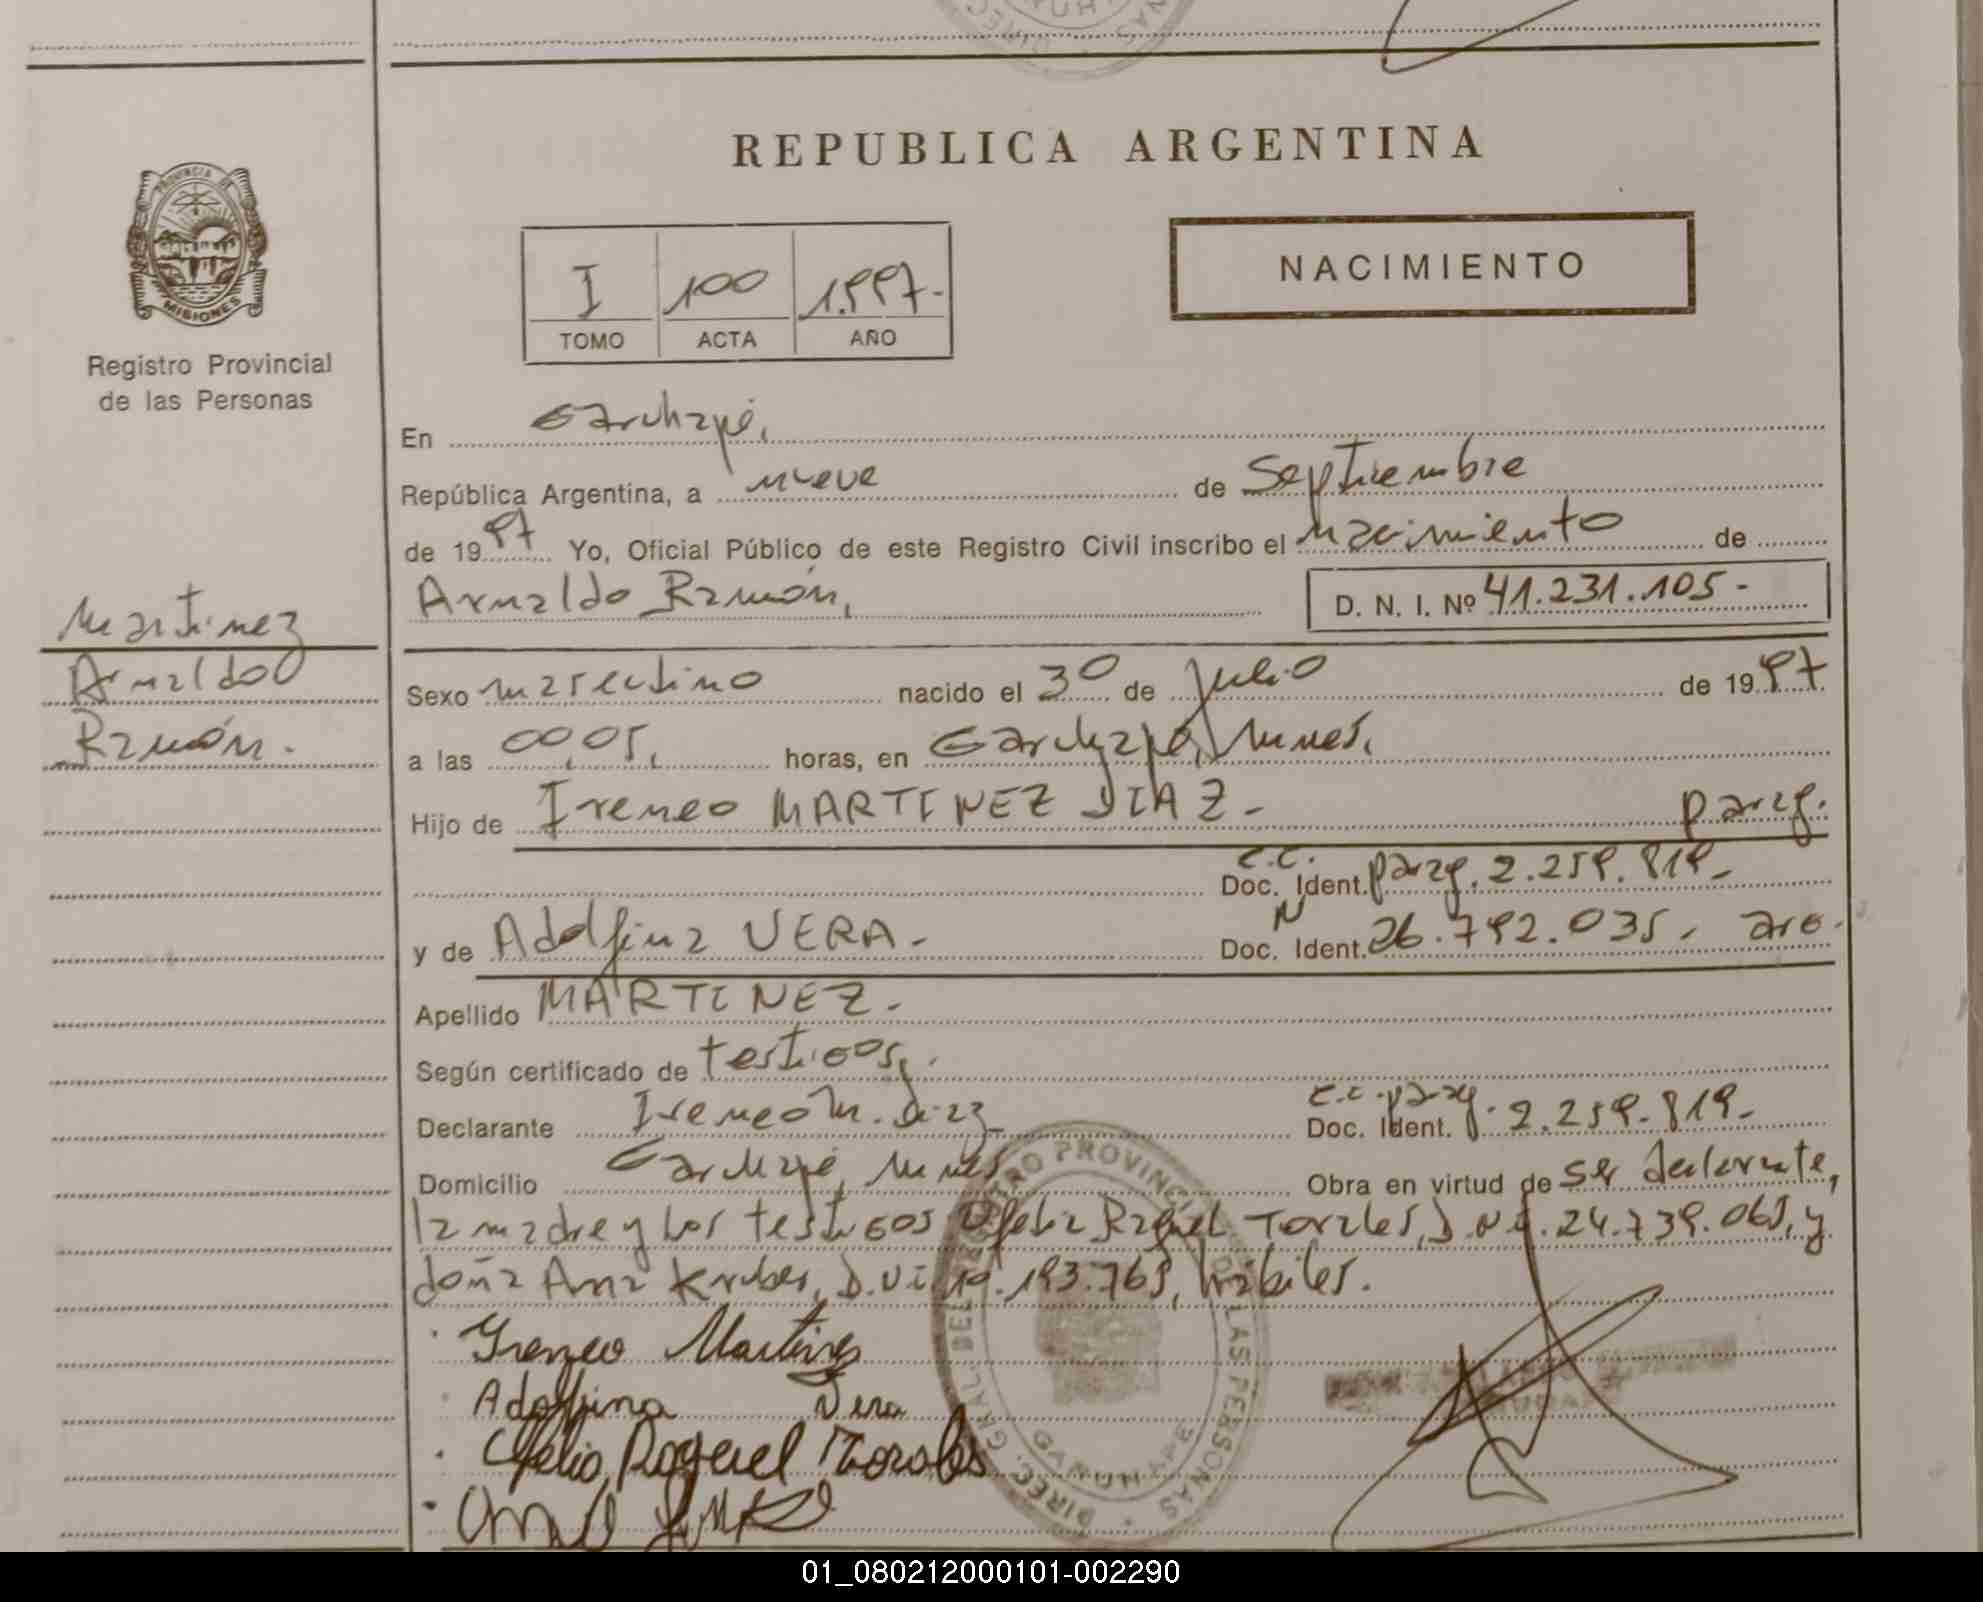 REPUBLICA ARGENTINA
PROVINCIA DE
MISIONES
Registro Provincial
de las Personas
NACIMIENTO
I 100 1.997.-
TOMO ACTA AÑO
En Garuhapé,
República Argentina, a nueve de Septiembre
de 1997 Yo, Oficial Público de este Registro Civil inscribo el nacimiento de
Arnaldo Ramón, D. N. I. Nº 41.231.105-
Martinez
Arnaldo
Ramón.
Sexo masculino nacido el 30 de Julio de 1997
a las 00,05, horas, en Garuhapé, Mnes,
Hijo de Ireneo MARTINEZ DIAZ- parag.
C.C.
Doc. Ident. parag. 2.259.819-
y de Adolfina VERA- Doc. N Ident. 26.792.035, arg.
Apellido MARTINEZ-
Según certificado de testigos,
Declarante Ireneo M. Diaz Doc. Ident. C.C. parag. 2.259.819-
Domicilio Garuhapé, Mnes Obra en virtud de ser declarante,
la madre y los testigos Ofelia Raquel Torales, D.N.I. 24.739.065, y
doña Ana D.N.I. 10.193.769, hábiles.
Ireneo Martinez
Adolfina Vera
Ofelia Raquel Torales
DIREC. GRAL. DEL REGISTRO PROVINCIAL DE LAS PERSONAS
GARUHAPE
01_080212000101-002290